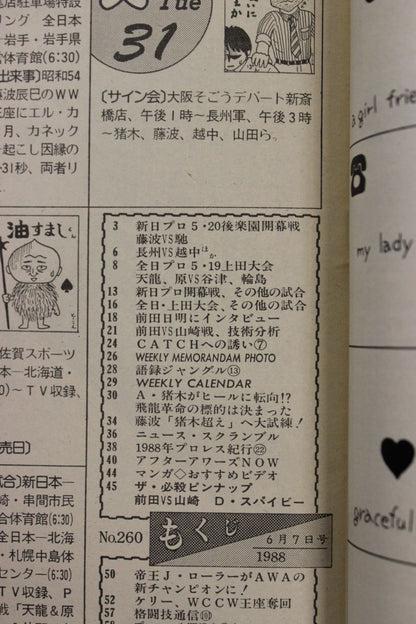 店駐車場特設
リング 全日本
―岩手・岩手県
営体育館(6:30)
出来事)昭和54
藤波辰巳のWW
王座にエル・カ
月、カネック
起こし因縁の
31秒、両者リ
Tue
31
〔サイン会〕大阪そごうデパート新斎
橋店、午後1時〜長州軍、午後3時
〜猪木、藤波、越中、山田ら。
油すまし
佐賀スポーツ
本―北海道・
)〜TV収録、
売日〕
試合〕新日本―
崎・串間市民
合体育館(6:30)
全日本―北海
・札幌中島体
センター(6:30)
TV収録、P
戦「天龍&原
3 新日プロ5・20後楽園開幕戦
藤波VS馳
6 長州VS越中ほか
8 全日プロ5・19上田大会
天龍、原VS谷津、輪島
13 新日プロ開幕戦、その他の試合
16 全日・上田大会、その他の試合
18 前田日明にインタビュー
21 前田VS山崎戦、技術分析
24 CATCHへの誘い⑦
26 WEEKLY MEMORANDAM PHOTO
28 語録ジャングル⑬
29 WEEKLY CALENDAR
30 A・猪木がヒールに転向!?
飛龍革命の標的は決まった
34 藤波「猪木超え」へ大試練!
36 ニュース・スクランブル
38 1988年プロレス紀行㉒
40 アフターアワーズNOW
44 マンガ◇おすすめビデオ
45 ザ・必殺ピンナップ
前田VS山崎 D・スパイビー
No.260 もくじ 6月7日号
1988
50 帝王J・ローラーがAWAの
新チャンピオンに!
52 ケリー、WCCW王座奪回
57 格闘技通信
a girl frien
my lady
graceful